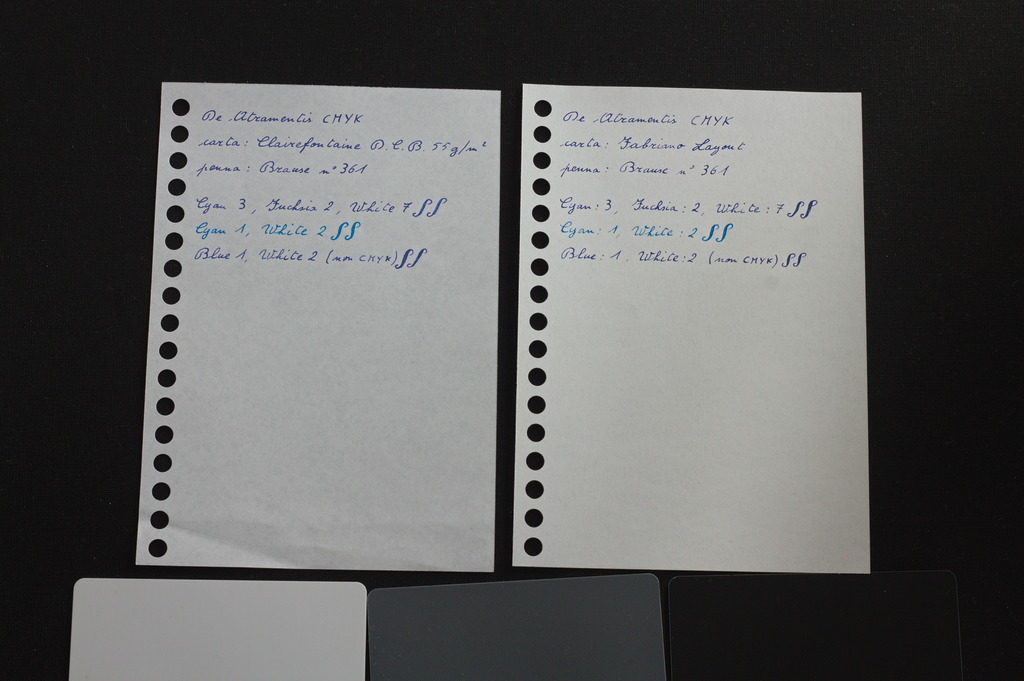 De Atramentis CMYK
carta: Clairefontaine D.C.B. 55g/m²
penna: Brause n° 361
Cyan 3, Fuchsia 2, White 7 ∫∫
Cyan 1, White 2 ∫∫
Blue 1, White 2 (non CMYK) ∫∫
De Atramentis CMYK
carta: Fabriano Layout
penna: Brause n° 361
Cyan: 3, Fuchsia: 2, White: 7 ∫∫
Cyan: 1, White: 2 ∫∫
Blue: 1, White: 2 (non CMYK) ∫∫